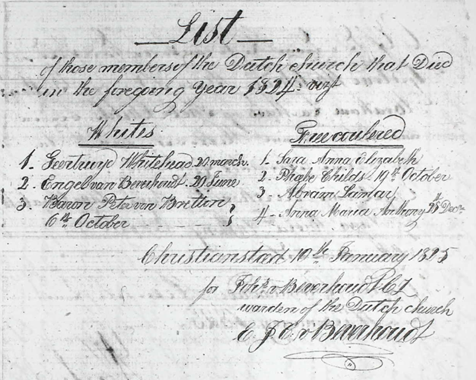 List
of those members of the Dutch church that Died
in the foregoing Year 1824. vizt
Whites
1. Geertruyd Whitehead 20 march.
2. Engel van Beverhoudt. 20 June
3. Baron Peter van Bretton
6th October
Freecoulered
1. Sara Anna Elizabeth
2. Phebe Childs 19th October
3. Abram Lamar
4. Anna Maria Anthony 28 Decr
Christiansted 10th January 1825
for v Beverhoudt
warden of the Dutch church
E J C v Beverhoudt